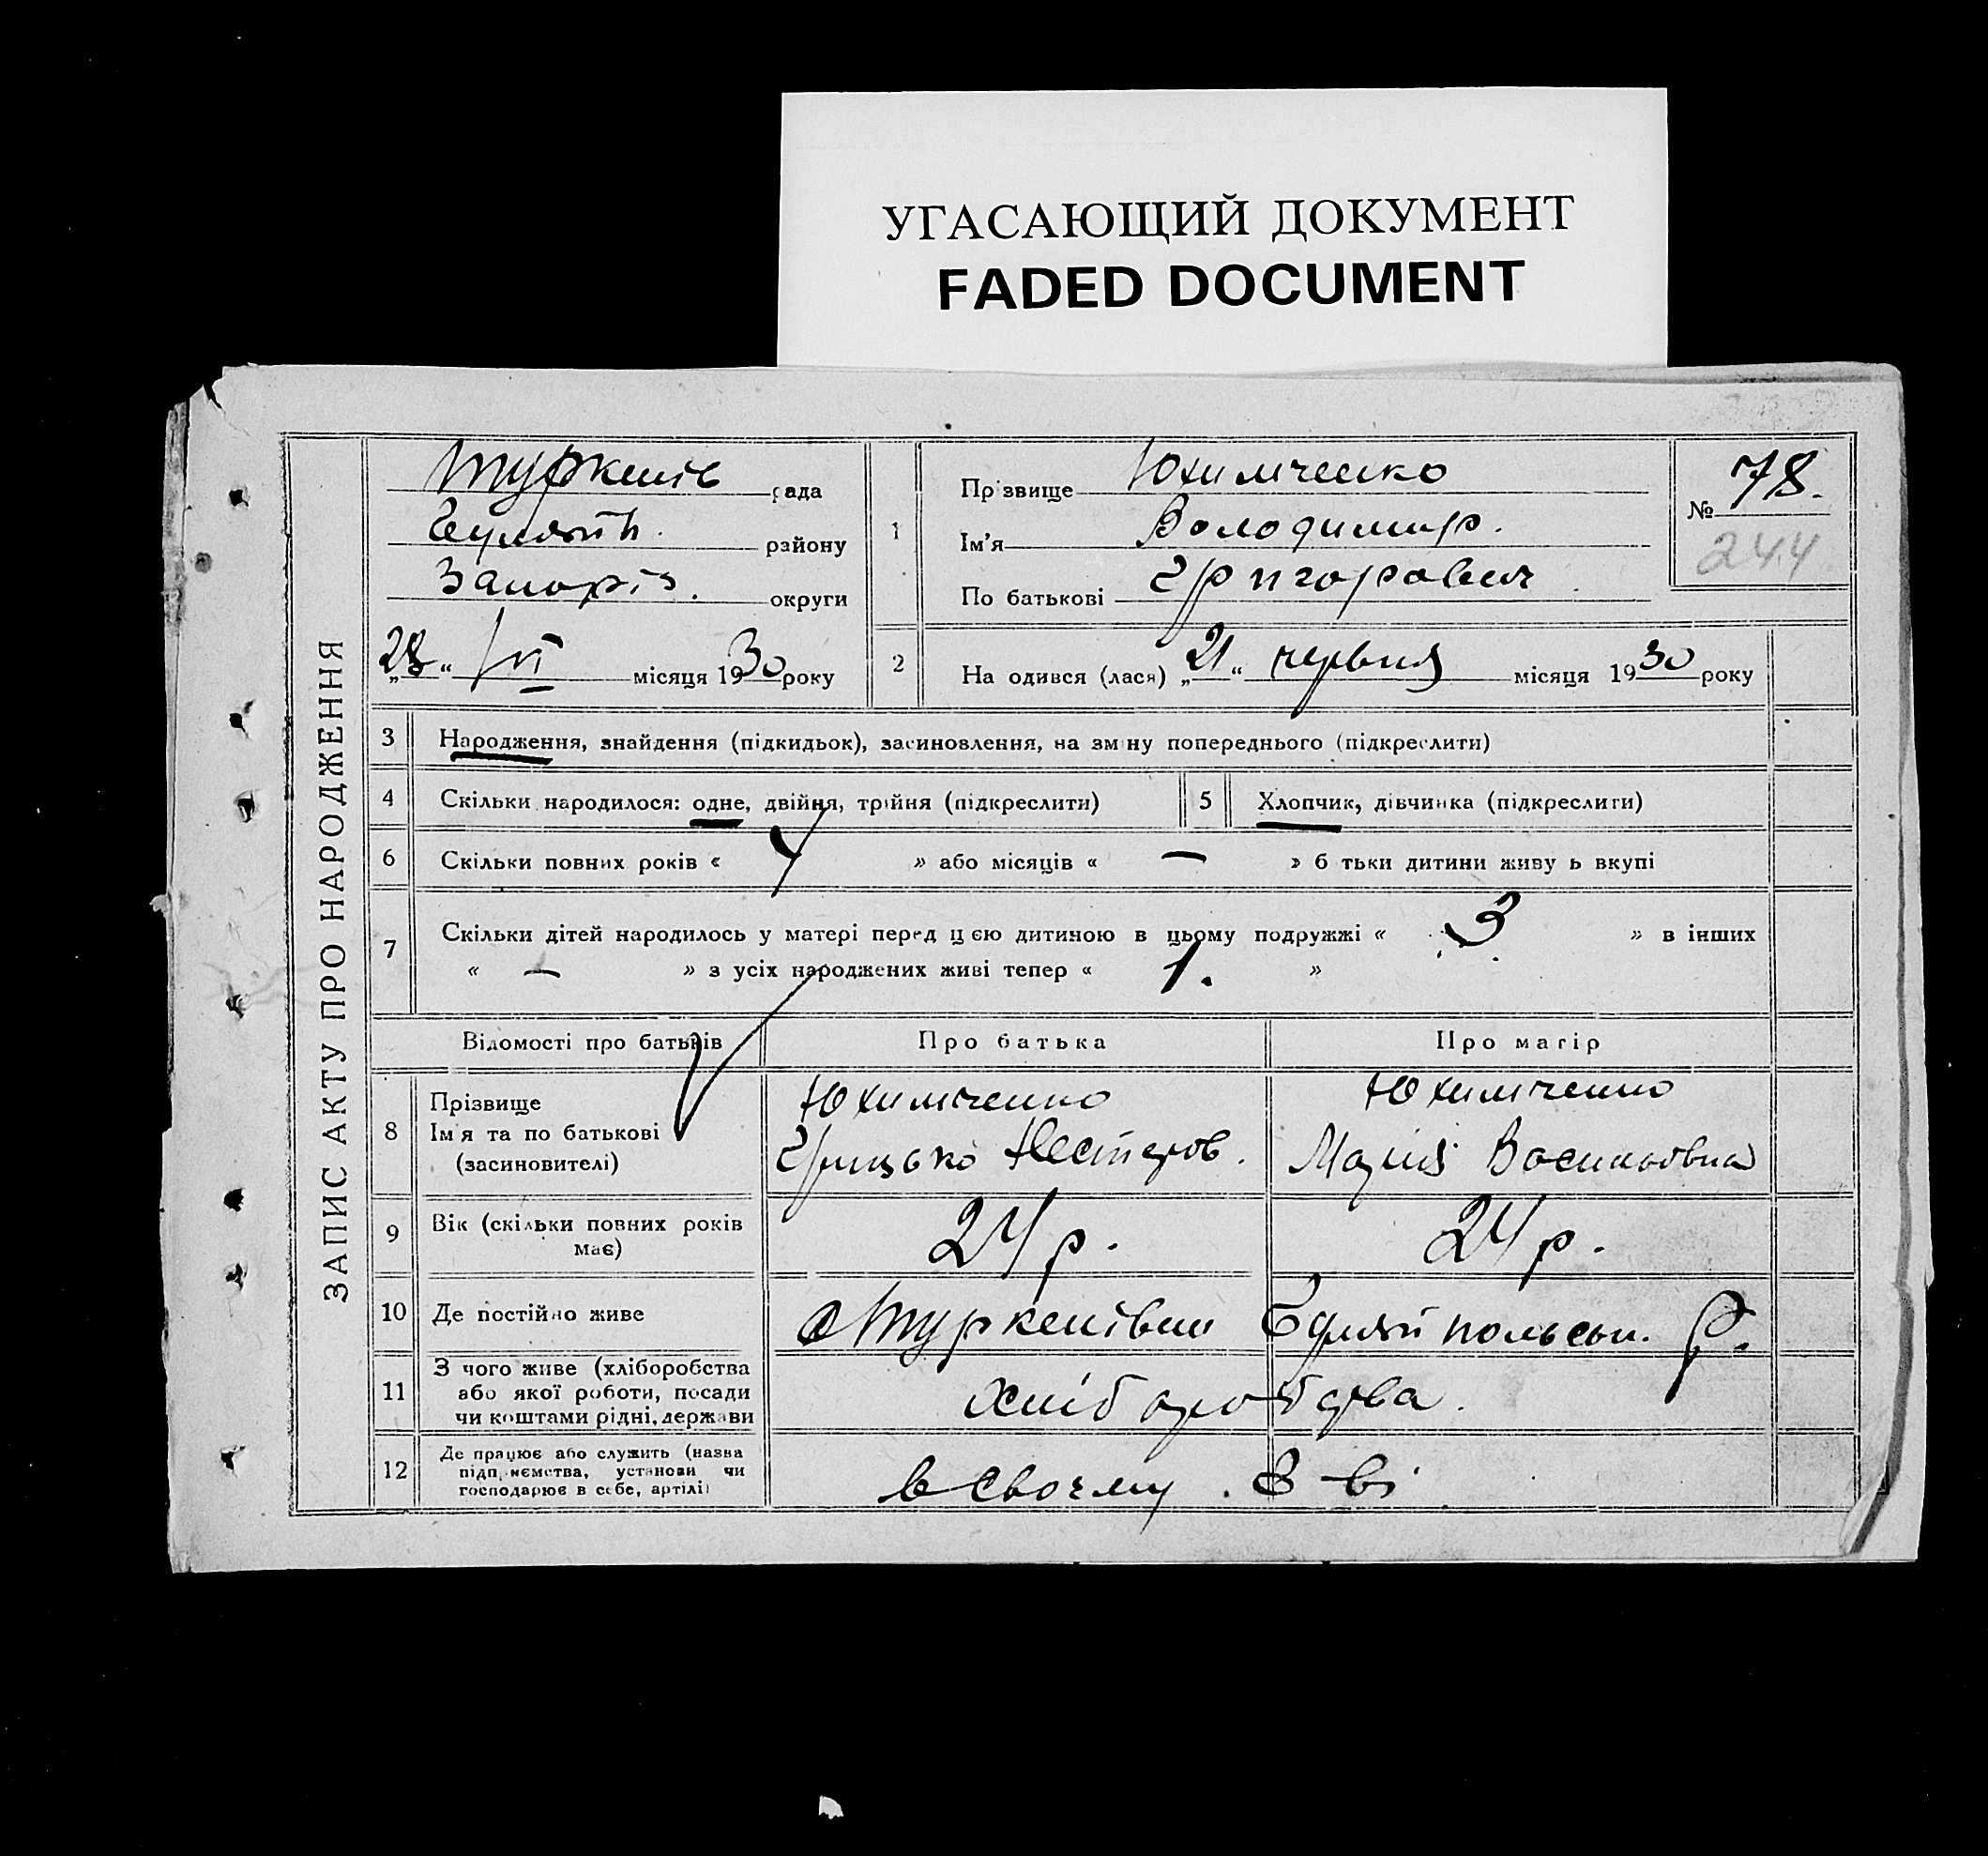 УГАСАЮЩИЙ ДОКУМЕНТ
FADED DOCUMENT
ЗАПИС АКТУ ПРО НАРОДЖЕННЯ
Туркенів рада
Гуляйп. району
Запоріз. округи
„28“ VI місяця 1930 року
1
Прізвище Юхимченко
Ім'я Володимир.
По батькові Григорович
№ 78.
244
2 На одився (лася) „21“ червня місяця 1930 року
3 Народження, знайдення (підкидьок), засиновлення, на зміну попереднього (підкреслити)
4 Скільки народилося: одне, двійня, трійня (підкреслити) 5 Хлопчик, дівчинка (підкреслити)
6 Скільки повних років « 4 » або місяців « — » б тьки дитини живу ь вкупі
7 Скільки дітей народилось у матері перед цією дитиною в цьому подружжі « 3 » в інших
« — » з усіх народжених живі тепер « 1. »
Відомості про батьків Про батька Про матір
8 Прізвище
Ім'я та по батькові
(засиновителі)
Юхимченко
Грицько Нестеров.
Юхимченко
Марія Василовна
9 Вік (скільки повних років
має)
24 р. 24 р.
10 Де постійно живе с Туркенівци Гуляйпольськ. р.
11 З чого живе (хліборобства
або якої роботи, посади
чи коштами рідні, держави
хліборобства.
12 Де працює або служить (назва
підприємства, установи чи
господарює в себе, артілі)
в своєму